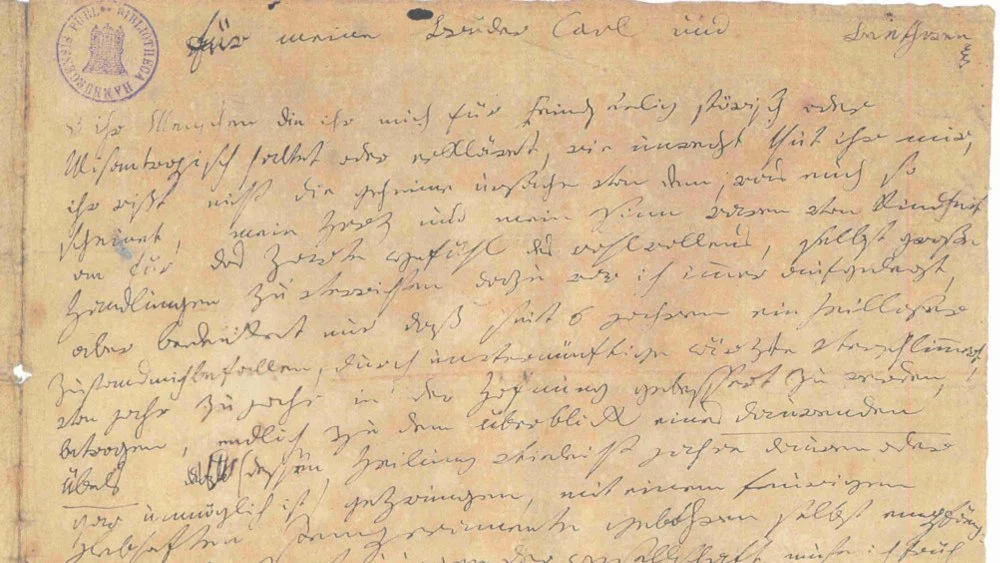 BIBLIOTHECA HAMBURGENSIS PUBL.
für meine Brüder Carl und Beethowen
o ihr Menschen die ihr mich für Feindseelig störisch oder
Misantropisch haltet oder erkläret, wie unrecht thut ihr mir,
ihr wißt nicht die geheime ursache von dem, was euch so
scheinet, mein Herz und mein Sinn waren von Kindheit
an für das Zarte Gefühl des wohlwollens, selbst große
Handlungen zu verrichten dazu war ich imer aufgelegt,
aber bedenket nur daß seit 6 jahren ein heilloser
Zustand mich befallen, durch unvernünftige ärzte verschlimert,
von jahr zu jahr in der Hofnung gebessert zu werden,
betrogen, endlich zu dem überblick eines daurenden
Übels (dessen Heilung vieleicht jahre dauren oder
gar unmöglich ist) gezwungen, mit einem feurigen
Lebhaften Temperamente gebohren selbst
der gesellschaft, muste ich früh